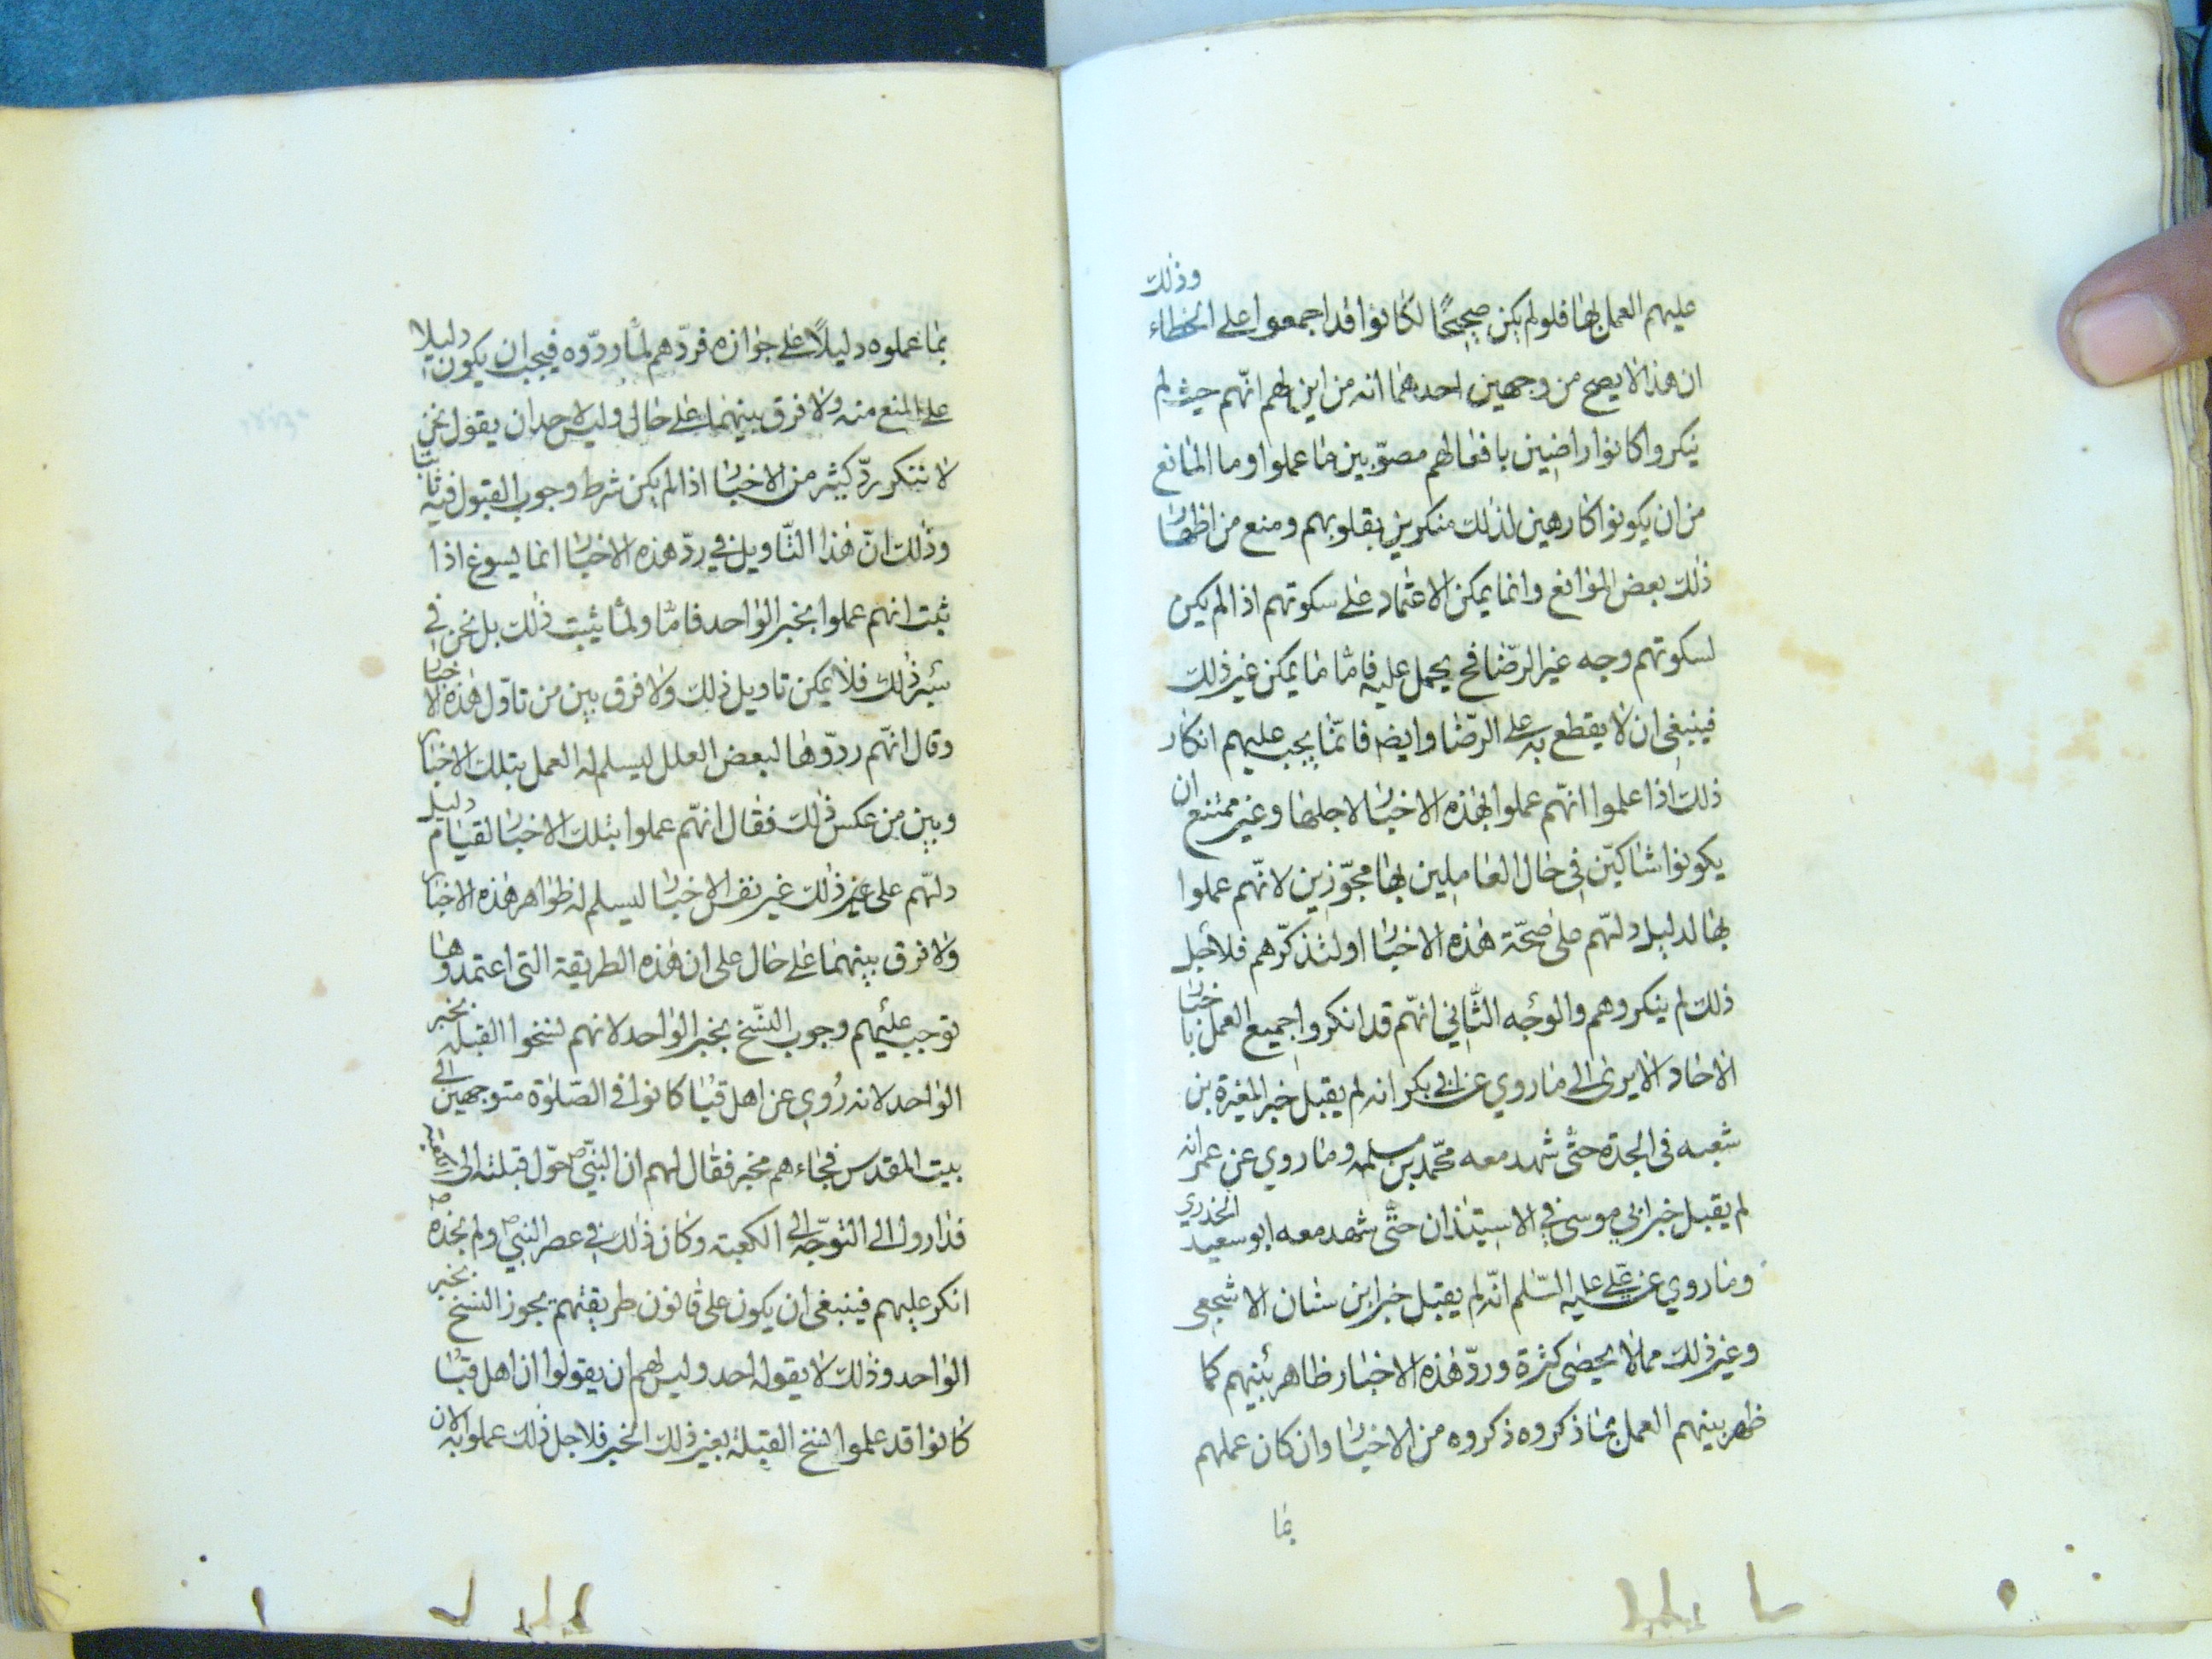 عليهم العمل بها فلو لم يكن صحيحًا لكانوا قد اجمعوا على الخطاء وذلك
ان هذا لا يصح من وجهين احدهما انه من اين لهم انّهم حيث لم
ينكروا كانوا راضين بافعالهم مصوّبين ما عملوا وما المانع
من ان يكونوا كارهين لذلك منكرين بقلوبهم ومنع من اظهار
ذلك بعض الموانع وانما يمكن الاعتماد على سكوتهم اذا لم يكن
لسكوتهم وجه غير الرّضا فح يحمل عليه فامّا ما يمكن غير ذلك
فينبغي ان لا يقطع به على الرّضا وايضه فانّما يجب عليهم انكار
ذلك اذا علموا انّهم عملوا بهذه الاخبار لاجلها وغير ممتنع ان
يكونوا شاكيّن في حال العاملين بها مجوّزين لانّهم عملوا
بها لدليل دلّهم على صحّة هذه الاخبار او لتذكّرهم فلاجل
ذلك لم ينكروهم والوجه الثّاني انّهم قد انكروا جميع العمل باخبار
الاحاد الا يرى الى ما روي عن ابى بكر انه لم يقبل خبر المغيرة بن
شعبه في الجدة حتّى شهد معه محمّد بن مسلمه وما روي عن عمر انه
لم يقبل خبر ابي موسى في الاستيذان حتّى شهد معه ابو سعيد الخدري
وما روي عن علىّ عليه السّلم انّه لم يقبل خبر ابن سنان الاشجعى
وغير ذلك ممالا يحصى كثرة وردّ هذه الاخبار ظاهر بينهم كما
ظهر بينهم العمل بما ذكروه ذكروه من الاخبار وان كان عملهم
بما
بما عملوه دليلاً على جوازه فردّهم لما ردّوه فيجب ان يكون دليلا
على المنع منه ولا فرق بينهما على حال وليس لاحد ان يقول نحن
لا ننكر ردّ كثير من الاخبار اذا لم يكن شرط وجوب القبول فيه ثابتا
وذلك انّ هذا التّاويل في ردّ هذه الاخبار انما يسوغ اذا
ثبت انهم عملوا بخبر الواحد فامّا ولمّا يثبت ذلك بل نحن في
سبر ذلك فلا يمكن تاويل ذلك ولا فرق بين من تاوّل هذه الاخبار
وقال انّهم ردّوها لبعض العلل ليسلم له العمل بتلك الاخبار
وبين من عكس ذلك فقال انّهم عملوا بتلك الاخبار لقيام دليل
دلّهم على غير ذلك غير نفس الاخبار ليسلم له ظواهر هذه الاخبار
ولا فرق بينهما على حال على ان هذه الطريقة التي اعتمدوها
توجب عليهم وجوب النسّخ بخبر الواحد لانهم نسخوا القبله بخبر
الواحد لانه رُوي عن اهل قبا كانوا في الصّلوة متوجهين الى
بيت المقدس فجاءهم مخبر فقال لهم ان النبيّ ص حوّل قبلته الى الكعبة
فداروا الى التوّجّه الى الكعبته وكان ذلك في عصر النبي ص ولم نجده ص
انكر عليهم فينبغي ان يكون على قانون طريقتهم يجوز النسخ بخبر
الواحد وذلك لا يقوله احد وليس لهم ان يقولوا ان اهل قبا
كانوا قد علموا نسخ القبلة بغير ذلك الخبر فلاجل ذلك عملوا به لان